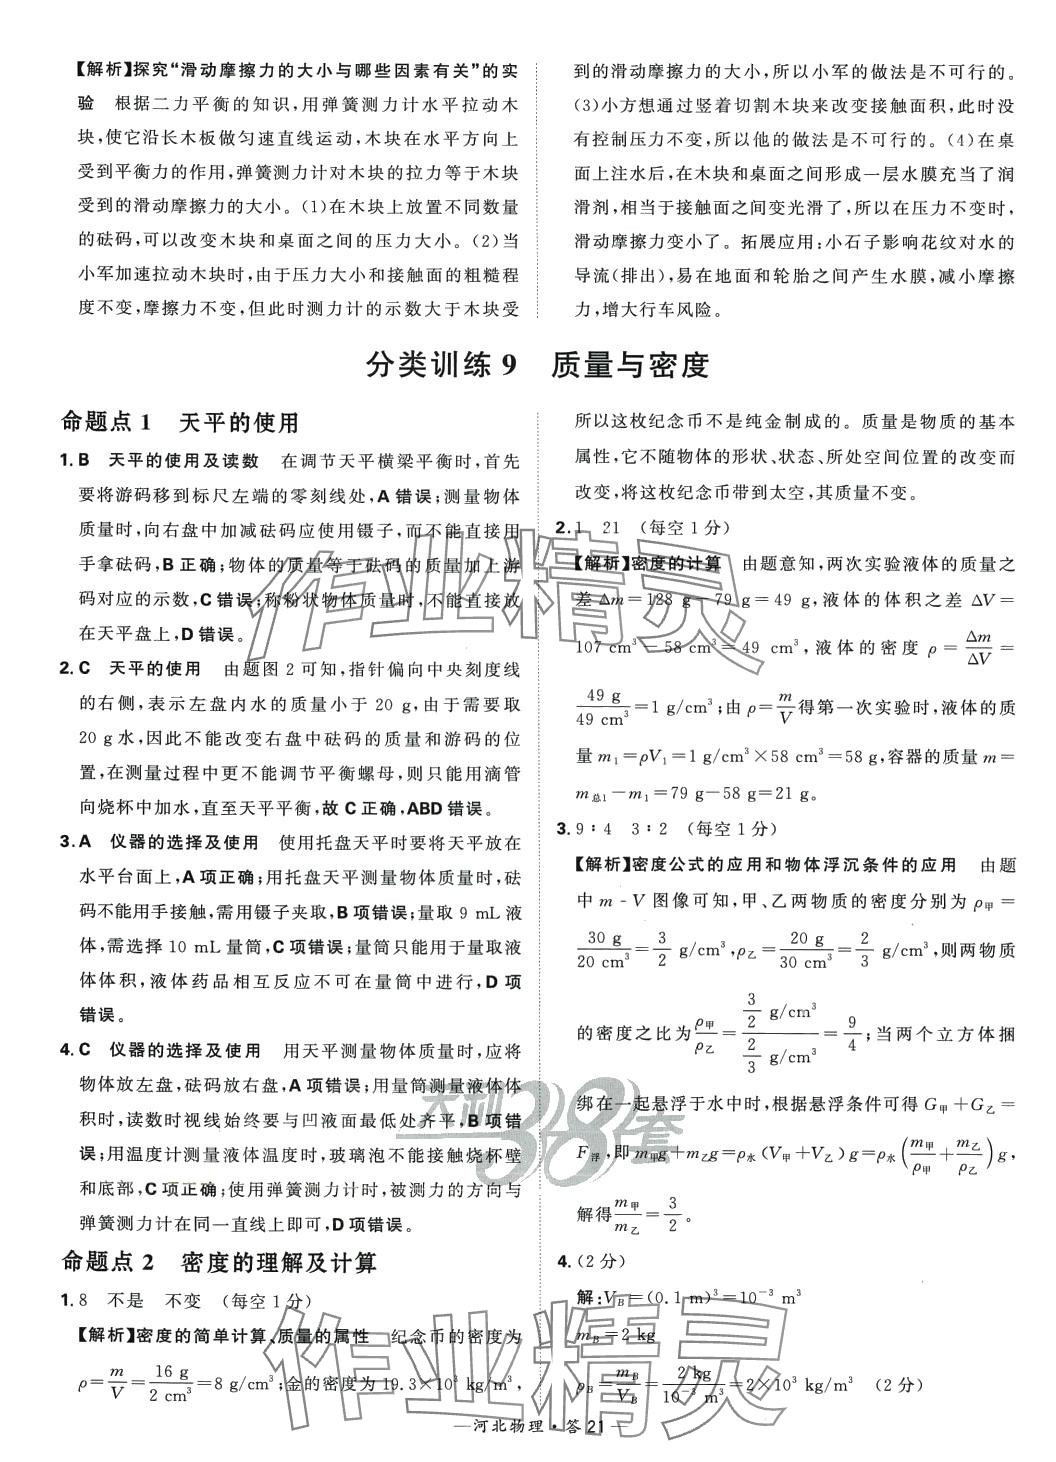 【解析】探究“滑动摩擦力的大小与哪些因素有关”的实
验　根据二力平衡的知识,用弹簧测力计水平拉动木
块,使它沿长木板做匀速直线运动,木块在水平方向上
受到平衡力的作用,弹簧测力计对木块的拉力等于木块
受到的滑动摩擦力的大小。(1)在木块上放置不同数量
的砝码,可以改变木块和桌面之间的压力大小。(2)当
小军加速拉动木块时,由于压力大小和接触面的粗糙程
度不变,摩擦力不变,但此时测力计的示数大于木块受
到的滑动摩擦力的大小,所以小军的做法是不可行的。
(3)小方想通过竖着切割木块来改变接触面积,此时没
有控制压力不变,所以他的做法是不可行的。(4)在桌
面上注水后,在木块和桌面之间形成一层水膜充当了润
滑剂,相当于接触面之间变光滑了,所以在压力不变时,
滑动摩擦力变小了。拓展应用:小石子影响花纹对水的
导流(排出),易在地面和轮胎之间产生水膜,减小摩擦
力,增大行车风险。
分类训练9　质量与密度
命题点1　天平的使用
1.B　天平的使用及读数　在调节天平横梁平衡时,首先
要将游码移到标尺左端的零刻线处,A错误;测量物体
质量时,向右盘中加减砝码应使用镊子,而不能直接用
手拿砝码,B正确;物体的质量等于砝码的质量加上游
码对应的示数,C错误;称粉状物体质量时,不能直接放
在天平盘上,D错误。
2.C　天平的使用　由题图2可知,指针偏向中央刻度线
的右侧,表示左盘内水的质量小于20 g,由于需要取
20 g水,因此不能改变右盘中砝码的质量和游码的位
置,在测量过程中更不能调节平衡螺母,则只能用滴管
向烧杯中加水,直至天平平衡,故C正确,ABD错误。
3.A　仪器的选择及使用　使用托盘天平时要将天平放在
水平台面上,A项正确;用托盘天平测量物体质量时,砝
码不能用手接触,需用镊子夹取,B项错误;量取9 mL液
体,需选择10 mL量筒,C项错误;量筒只能用于量取液
体体积,液体药品相互反应不可在量筒中进行,D项
错误。
4.C　仪器的选择及使用　用天平测量物体质量时,应将
物体放左盘,砝码放右盘,A项错误;用量筒测量液体体
积时,读数时视线始终要与凹液面最低处齐平,B项错
误;用温度计测量液体温度时,玻璃泡不能接触烧杯壁
和底部,C项正确;使用弹簧测力计时,被测力的方向与
弹簧测力计在同一直线上即可,D项错误。
命题点2　密度的理解及计算
1.8　不是　不变　(每空1分)
【解析】密度的简单计算、质量的属性　纪念币的密度为
ρ=m/V=16 g/2 cm³=8 g/cm³;金的密度为19.3×10³ kg/m³,
所以这枚纪念币不是纯金制成的。质量是物质的基本
属性,它不随物体的形状、状态、所处空间位置的改变而
改变,将这枚纪念币带到太空,其质量不变。
2.1　21　(每空1分)
【解析】密度的计算　由题意知,两次实验液体的质量之
差 Δm=128 g-79 g=49 g,液体的体积之差 ΔV=
107 cm³-58 cm³=49 cm³,液体的密度 ρ=Δm/ΔV=
49 g/49 cm³=1 g/cm³;由ρ=m/V得第一次实验时,液体的质
量m₁=ρV₁=1 g/cm³×58 cm³=58 g,容器的质量m=
m总1-m₁=79 g-58 g=21 g。
3.9∶4　3∶2　(每空1分)
【解析】密度公式的应用和物体浮沉条件的应用　由题
中m-V图像可知,甲、乙两物质的密度分别为ρ甲=
30 g/20 cm³=3/2 g/cm³,ρ乙=20 g/30 cm³=2/3 g/cm³,则两物质
的密度之比为ρ甲/ρ乙=(3/2 g/cm³)/(2/3 g/cm³)=9/4;当两个立方体捆
绑在一起悬浮于水中时,根据悬浮条件可得G甲+G乙=
F浮,即m甲g+m乙g=ρ水(V甲+V乙)g=ρ水(m甲/ρ甲+m乙/ρ乙)g,
解得m甲/m乙=3/2。
4.(2分)
解:V_B=(0.1 m)³=10⁻³ m³
m_B=2 kg
ρ_B=m_B/V_B=2 kg/10⁻³ m³=2×10³ kg/m³　(2分)
—河北物理·答21—
作业精灵
天利38套
作业精灵